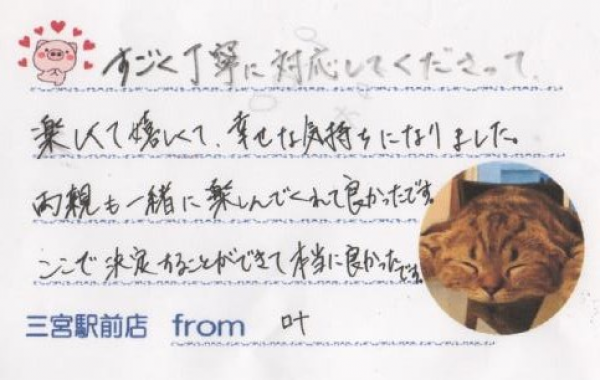 すごく丁寧に対応してくださって、
楽しくて嬉しくて、幸せな気持ちになりました。
両親も一緒に楽しんでくれて良かったです。
ここで決定することができて本当に良かったです。
三宮駅前店 from 叶